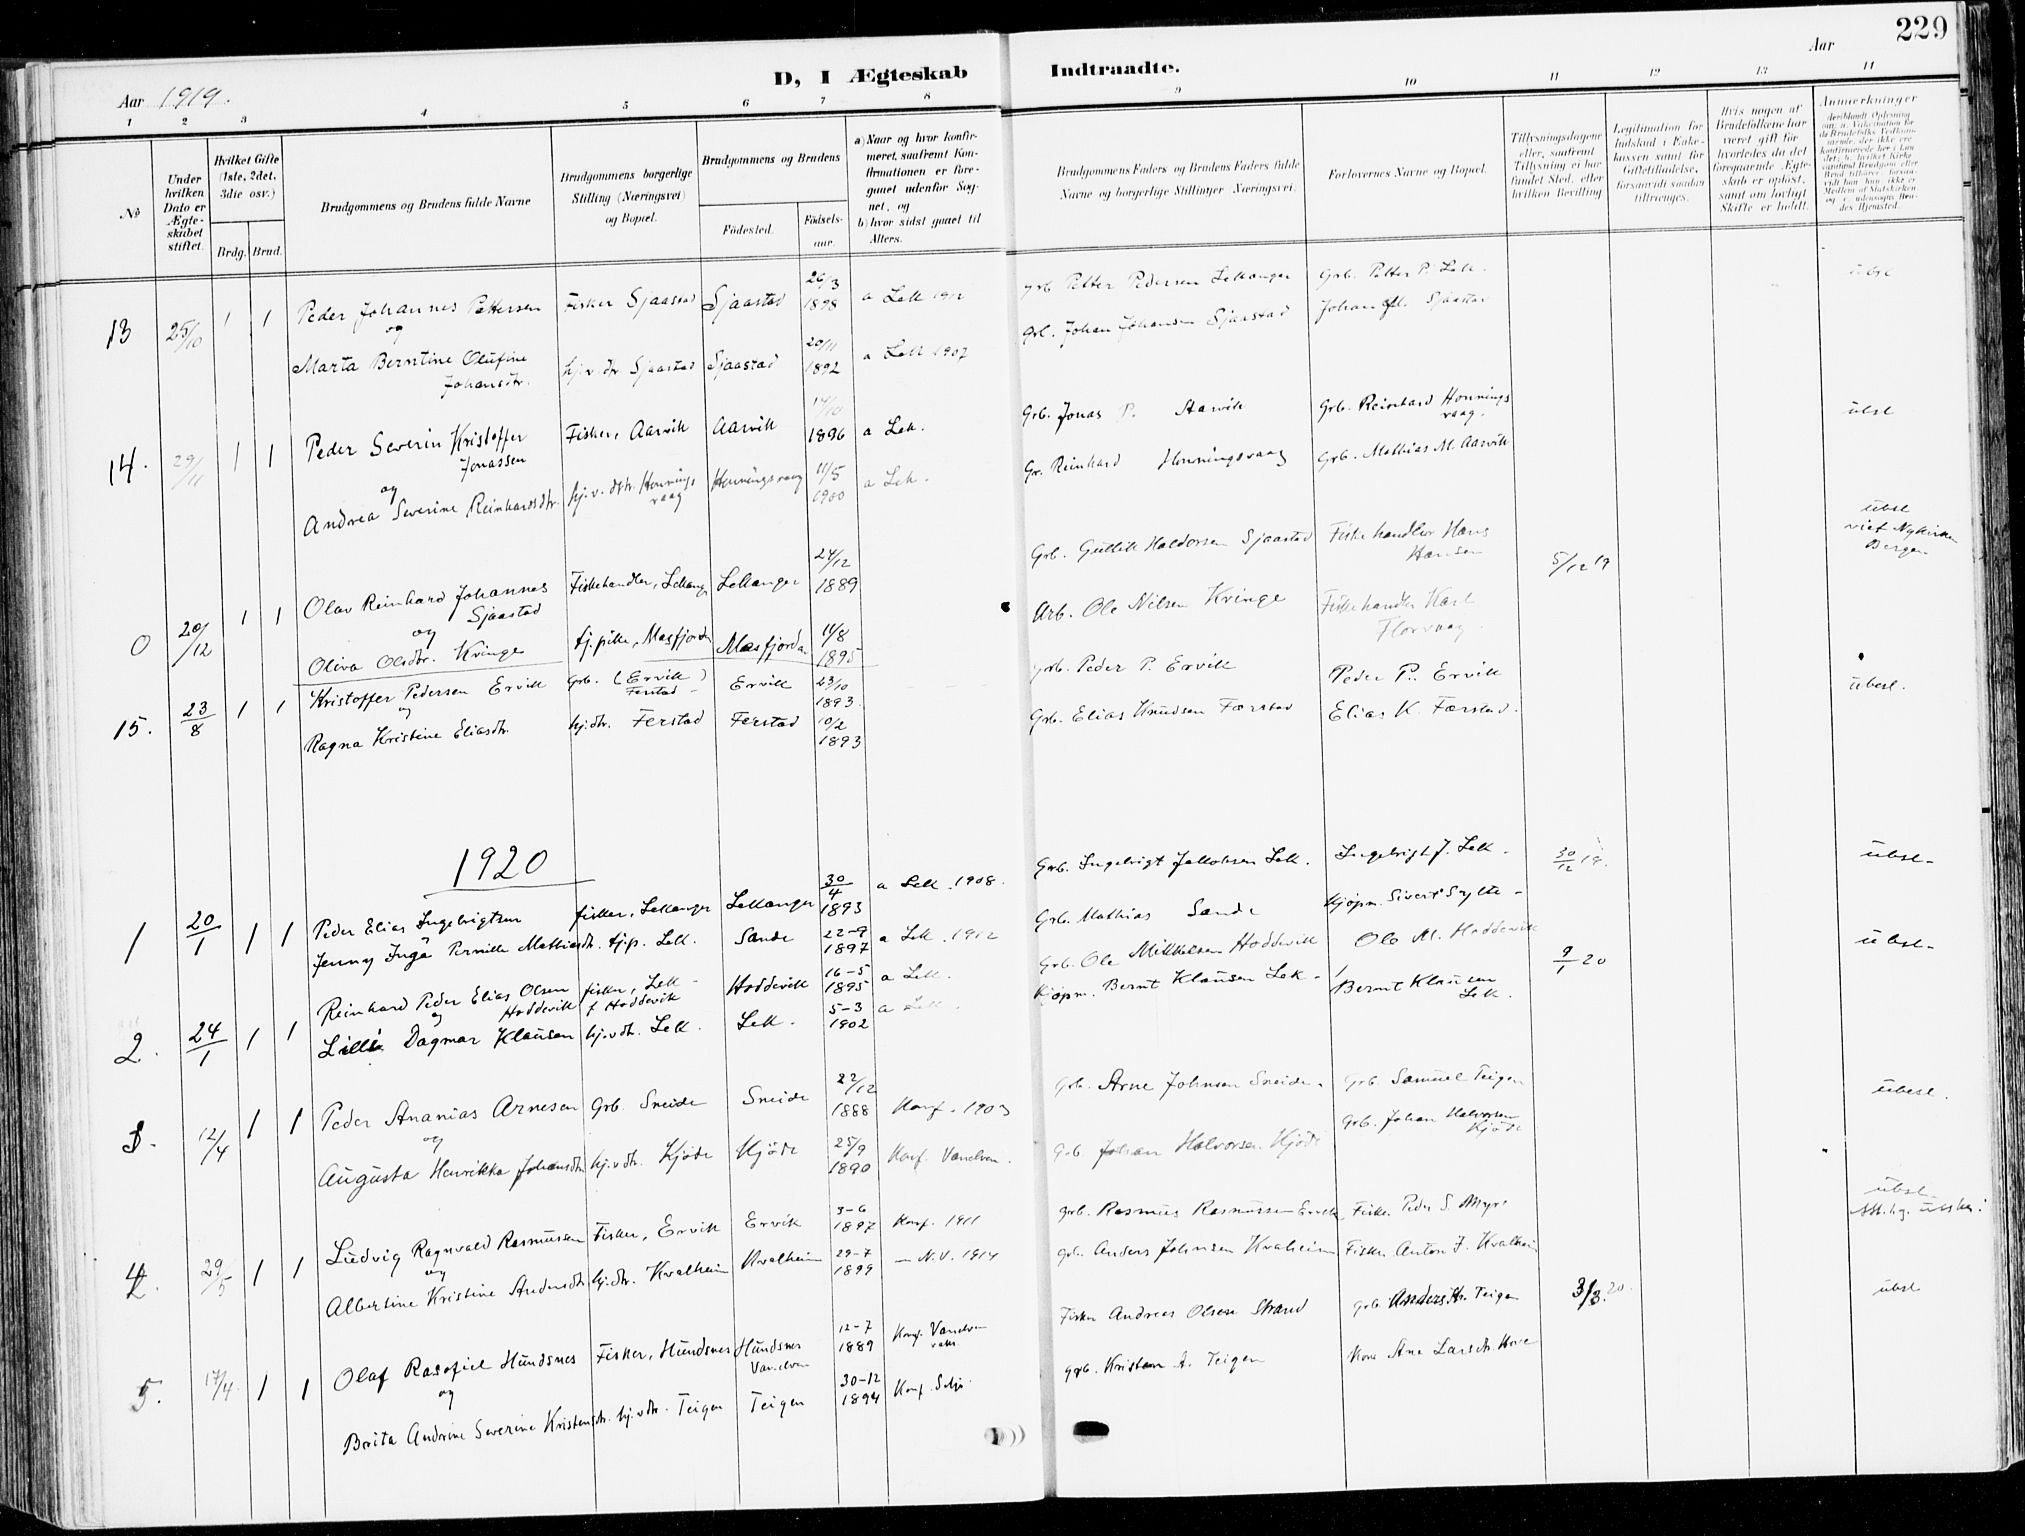 229
Aar
Aar 1919.
D, I Ægteskab Indtraadte.
1 2 3 4 5 6 7 8 9 10 11 12 13 14
No
Under hvilken Dato er Ægte-skabet stiftet.
Hvilket Gifte (1ste, 2det, 3die osv.)
Brdg. Brud.
Brudgommens og Brudens fulde Navne
Brudgommens borgerlige Stilling (Næringsvei) og Bopæl.
Brudgommens og Brudens
Fødested.
Fødsels-aar.
a) Naar og hvor konfir-meret, saafremt Kon-firmationen er fore-gaaet udenfor Sog-net, og
b) hvor sidst gaaet til Alters.
Brudgommens Faders og Brudens Faders fulde Navne og borgerlige Stillinger Næringsvei.
Forlovernes Navne og Bopæl.
Tillysningsdagene eller, saafremt Tillysning ei har fundet Sted, efter hvilken Bevilling
Legitimation for Indskud i Enke-kassen samt for Giftetilladelse, forsaavidt saadan tiltrænges.
Hvis nogen af Brudefolkene har været gift før hvorledes da det foregaaende Ægte-skab er opløst, samt om lovligt Skifte er holdt.
Anmerkninger
13 25/10 1 1 Peder Johannes Pettersen Fisker Sjaastad Sjaastad 26/3 1898 a Lek 1912 grb Petter Pedersen Lekanger Grb. Petter P. Lek. ubsl
og
Marta Berntine Olufine Johansdtr. hj.v. dtr Sjaastad Sjaastad 20/11 1892 a Lek 1907 Grb. Johan Johansen Sjaastad Johan Sjaastad
14. 29/11 1 1 Peder Severin Kristoffer Jonassen Fisker, Aarvik Aarvik 14/10 1896 a Lek. Grb. Jonas P. Aarvik Grb. Reinhard Honnings vaag. ubsl
og
Andrea Severine Reinhardsdtr. hj.v. dtr. Honnings vaag Honningsvaag 11/5 1900 a Lek. Gr. Reinhard Honningsvaag Grb. Mathias M. Aarvik
0 20/12 1 1 Olav Reinhard Johannes Sjaastad Fiskehandler, Lekanger Lekanger 24/12 1889 Grb. Gullik Haldorsen Sjaastad Fiskehandler Hans Hansen 5/12 19 ubsl viet Nykirken Bergen
og
Oliva Olsdtr. Kvinge tj.pike, Masfjorden Masfjorden 11/8 1895 Arb. Ole Nilsen Kvinge Fiskehandler Karl Florvaag
15. 23/8 1 1 Kristoffer Pedersen Ervik Grb. (Ervik) Ferstad Ervik 23/10 1893 grb. Peder P. Ervik Peder P. Ervik ubesl.
og
Ragna Kristine Eliasdtr. hj.dtr. Ferstad Ferstad 10/2 1893 Grb. Elias Knudsen Færstad Elias K. Færstad.
1920
1 20/1 1 1 Peder Elias Ingebrigtsen fisker, Lekanger Lekanger 30/4 1893 a Lek. 1908. Grb. Ingebrigt Jakobsen Lek. Ingebrigt J. Lek. 30/12 19. ubsl-
Jenny Inga Pernille Mathiasdtr. tjp. Lek. Sande 22-9 1897 a Lek. 1912 Grb. Mathias Sande Kjøpm. Sivert Sylte -
2. 24/1 1 1 Reinhard Peder Elias Olsen Hoddevik fisker, Lek - f Hoddevik Hoddevik 16-5 1895 a Lek. Grb. Ole Mikkelsen Hoddevik Ole M. Hoddevik 9/1 20 ubsl-
og
Lilli Dagmar Klausen hj.vdtr. Lek. Lek. 5-3 1902 a Lek. Kjøpm. Bernt Klausen Lek - Bernt Klausen Lek.
3. 12/4 1 1 Peder Ananias Arnesen Grb. Sneide Sneide 22/12 1888 Konf. 1903 Grb. Arne Johnsen Sneide. Grb. Samuel Teigen ubesl.
og
Augusta Henrikka Johansdtr hj.vdtr. Kjøde Kjøde 25/9 1890 Konf. Vanelven. Grb Johan Halvorsen Kjøde Grb. Johan Halvorsen Kjøde
4. 29/5 1 1 Ludvig Ragnvald Rasmussen Fisker, Ervik Ervik 3-6 1897 Konf. 1911 grb. Rasmus Rasmussen Ervik Fisk. Peder S. Myr ubsl
og
Albertine Kristine Andersdtr hj.dtr. Kvalheim Kvalheim 29-7 1899 - N.V. 1914 grb. Anders Johnsen Kvalheim Fisker Anton J. Kvalheim
5. 17/4. 1 1 Olaf Rasofiel Hundsnes Fisker, Hundsnes Hundsnes Vanelven 12-7 1889 Konf. Vanelven Fisker Andreas Olsen Strand grb. Anders Kr. Teigen 3/3. 20. ubsl
og
Brita Andrine Severine Kristensdtr. hj.vdtr. Teigen Teigen 30-12 1894 Konf. Selje. grb. Kristen A. Teigen Kone Ane Larsdtr. Hove